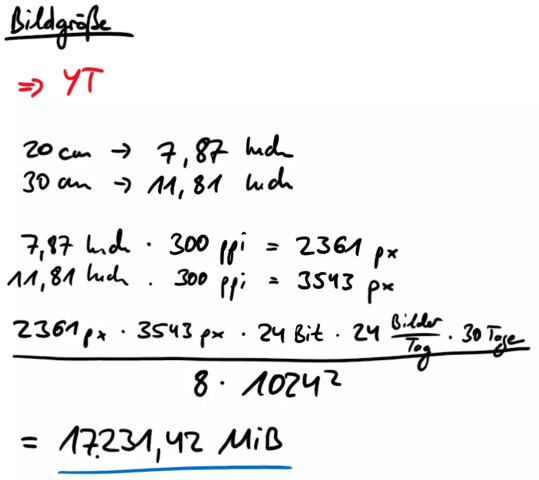 Bildgröße
⇒ YT
20 cm → 7,87 Inch
30 cm → 11,81 Inch
7,87 Inch · 300 ppi = 2361 px
11,81 Inch · 300 ppi = 3543 px
2361 px · 3543 px · 24 Bit · 24 Bilder/Tag · 30 Tage
8 · 1024²
= 17.231,42 MiB